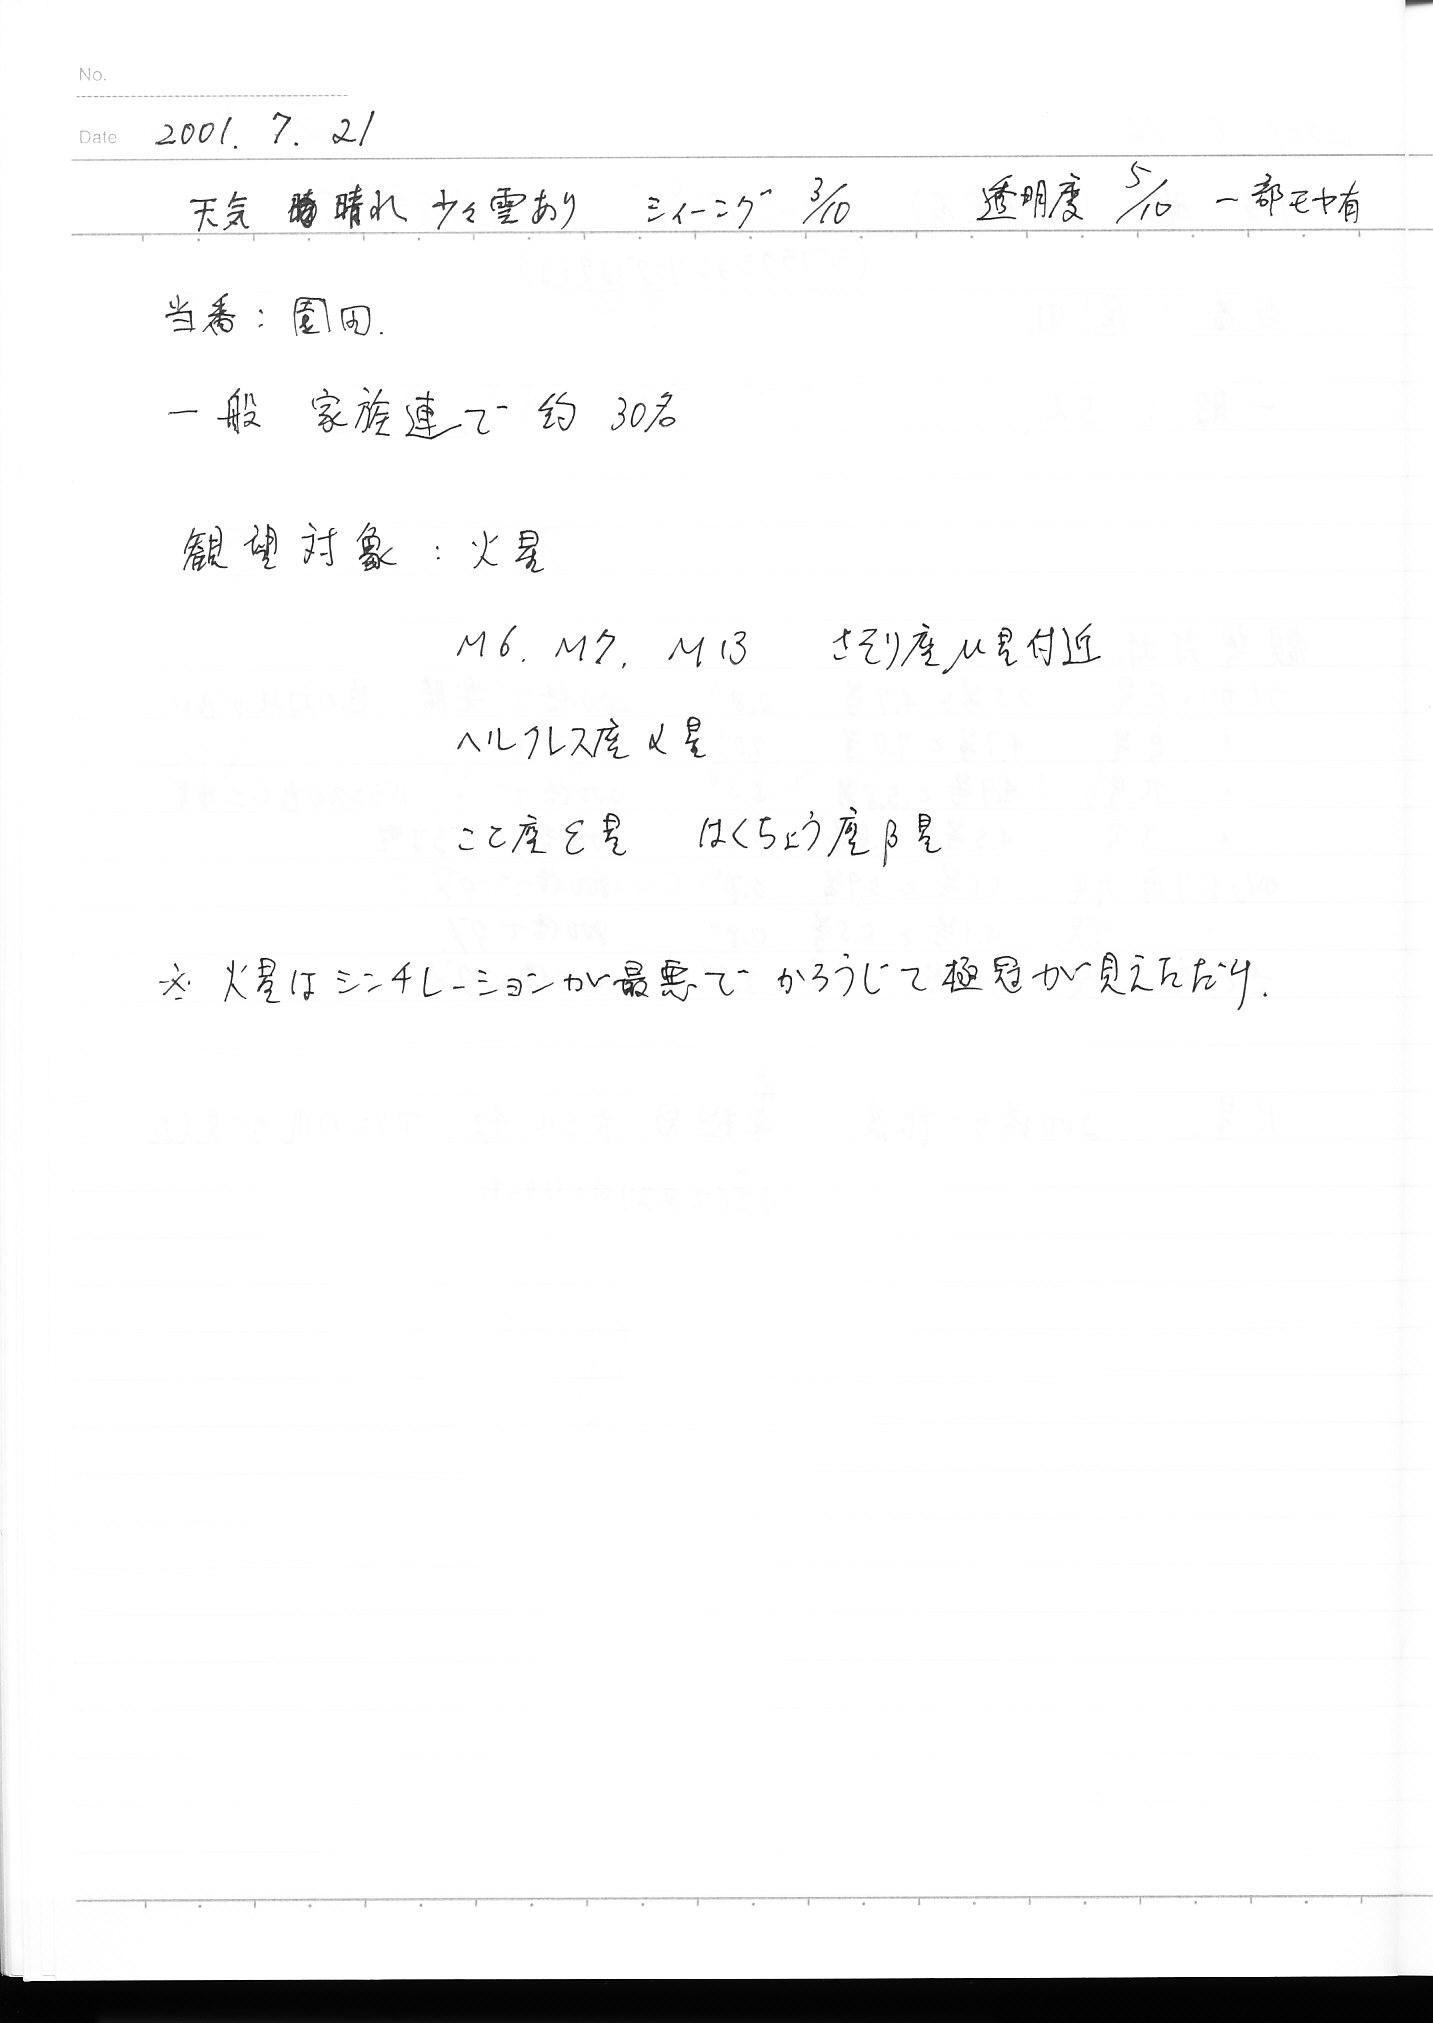 No.
Date 2001. 7. 21
天気 晴れ 少々雲あり シィーング 3/10 透明度 5/10 一部モヤ有
当番: 園田.
一般 家族連で 約 30名
観望対象 : 火星
M6. M7. M13 さそり座μ星付近
ヘルクレス座α星
こと座ε星 はくちょう座β星
※ 火星はシンチレーションが最悪で かろうじて極冠が見えただけ.